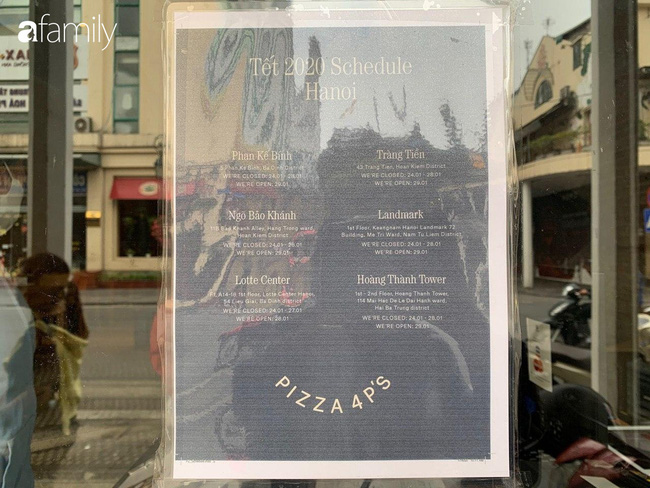 afamily
Tết 2020 Schedule
Hanoi
Phan Kế Bính
Phan Kế Bính, Ba Đình District
WE'RE CLOSED: 24.01 - 28.01
WE'RE OPEN: 29.01
Tràng Tiền
43 Trang Tien, Hoan Kiem District
WE'RE CLOSED: 24.01 - 28.01
WE'RE OPEN: 29.01
Ngõ Bảo Khánh
Bao Khanh Alley, Hang Trong ward,
Hoan Kiem District
WE'RE CLOSED: 24.01 - 28.01
WE'RE OPEN: 29.01
Landmark
1st Floor, Keangnam Hanoi Landmark 72
Building, Me Tri Ward, Nam Tu Liem District
WE'RE CLOSED: 24.01 - 28.01
WE'RE OPEN: 29.01
Lotte Center
1st floor, Lotte Center Hanoi,
54 Lieu Giai, Ba Dinh district
WE'RE CLOSED: 24.01 - 27.01
WE'RE OPEN: 28.01
Hoàng Thành Tower
1st - 2nd Floor, Hoang Thanh Tower,
114 Mai Hac De Le Dai Hanh ward,
Hai Ba Trung district
WE'RE CLOSED: 24.01 - 28.01
WE'RE OPEN: 29.01
PIZZA 4P'S